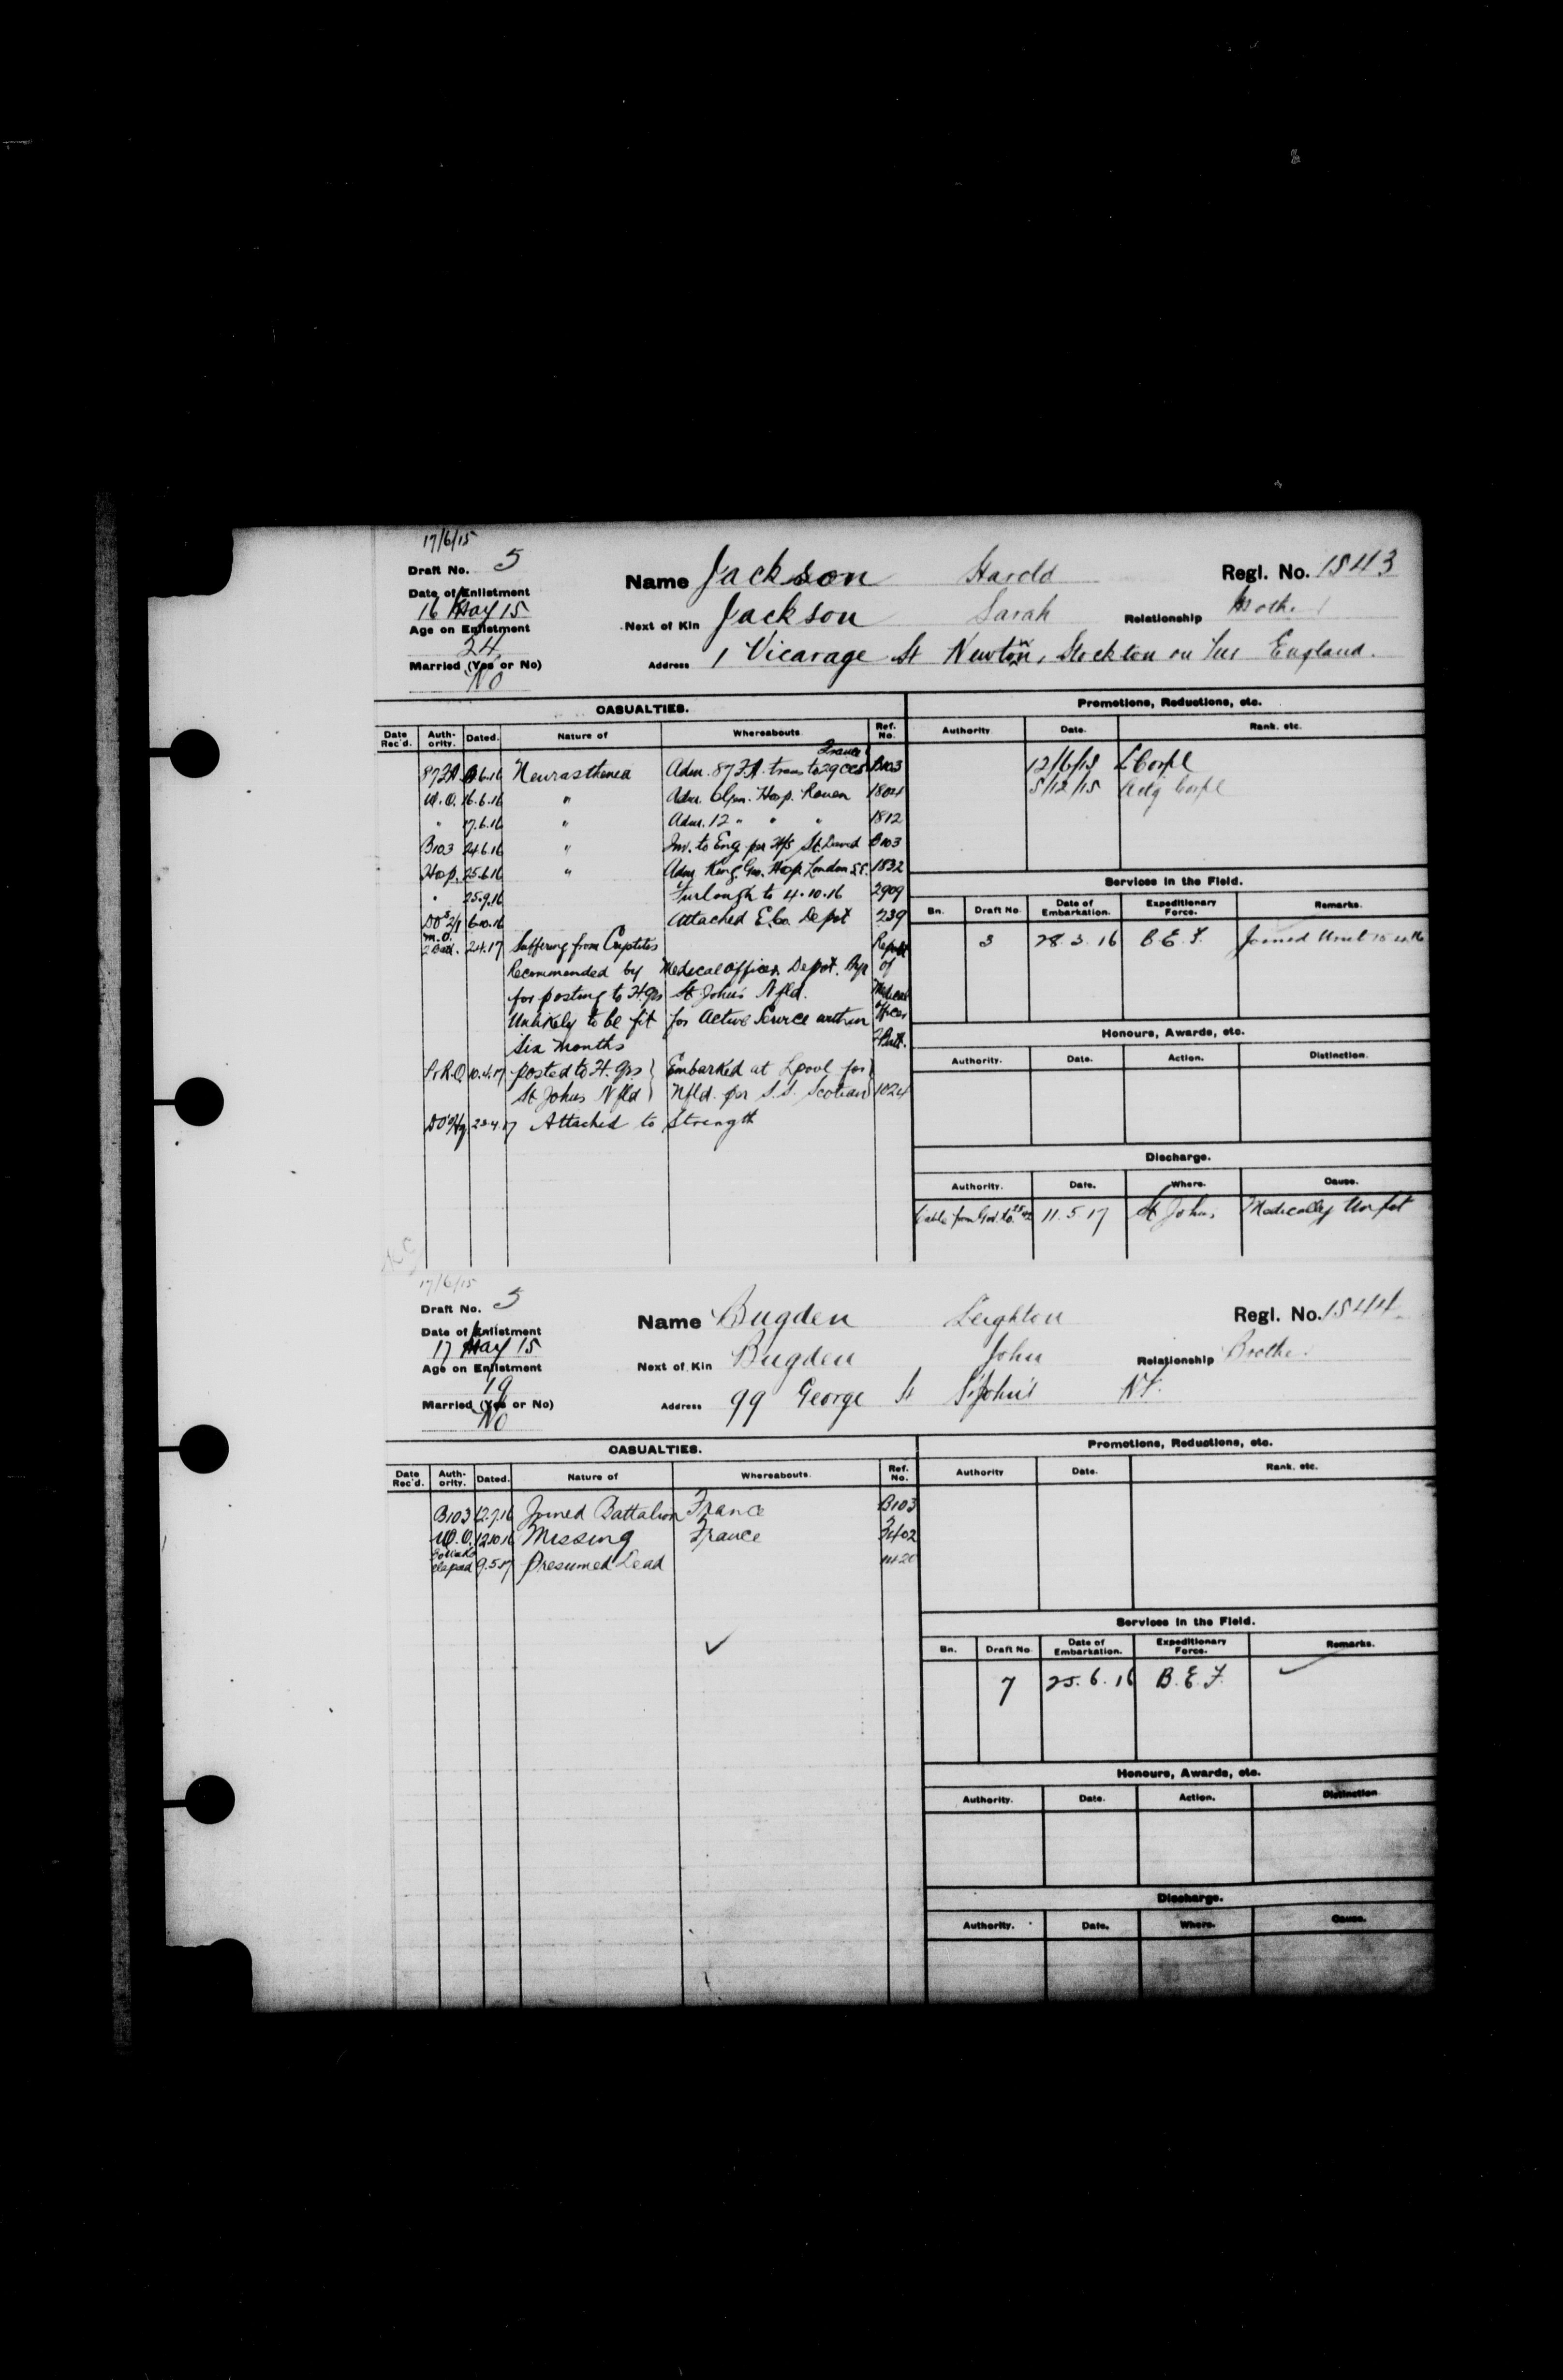 17/6/15
Draft No. 5
Name Jackson Harold Regl. No. 1543
Date of Enlistment
16 May 15
Next of Kin Jackson Sarah Relationship Mother
Age on Enlistment
24
Address 1 Vicarage St Newtown, Stockton on Tees England.
Married (Yes or No)
No
CASUALTIES. Promotions, Reductions, etc.
Date Rec'd. Auth-ority. Dated. Nature of Whereabouts Ref. No. Authority Date. Rank. etc.
France
87 F.A. 6.16 Neurasthenia Adm. 87 F.A. trans to 29 CCS B103 12/6/15 L Corpl
W.O. 16.6.16 " Adm. Gen. Hosp. Rouen 1804 5/12/15 Actg Corpl
" 17.6.16 " Adm. 12 " " " 1812
B103 24.6.16 " Inv. to Eng. per H/S St. David B103
Hosp. 25.6.16 " Adm. King Geo. Hosp. London S.E. 1832
Services in the Field.
" 25.9.16 Furlough to 4.10.16 2909
Bn. Draft No. Date of Embarkation. Expeditionary Force. Remarks.
6.10.16 Attached E. Co. Depot 239
3 28.3.16 B.E.F. Joined Unit 15.4.16
M.O. 2 Batt. 2.4.17 Suffering from Report
Recommended by Medical Officer, Depot. of
for posting to H.Qrs St. John's Nfld. Medical
Unlikely to be fit for Active Service within Officer
Six months
Honours, Awards, etc.
Authority. Date. Action. Distinction.
P.&R.O. 10.4.17 posted to H. Qrs Embarked at Lpool for
St Johns Nfld Nfld. per S.S. Scotian 1024
23.4.17 Attached to Strength
Discharge.
Authority. Date. Where. Cause.
Cable from Gov. to 11.5.17 St Johns Medically Unfit
17/6/15
Draft No. 5
Name Bugden Leighton Regl. No. 1544
Date of Enlistment
17 May 15
Next of Kin Bugden John Relationship Brother
Age on Enlistment
19
Address 99 George St St John's N.F.
Married (Yes or No)
No
CASUALTIES. Promotions, Reductions, etc.
Date Rec'd. Auth-ority. Dated. Nature of Whereabouts. Ref. No. Authority Date. Rank. etc.
B103 12.7.16 Joined Battalion France B103
W.O. 12.10.16 Missing France
9.5.17 Presumed Dead
Services in the Field.
Bn. Draft No. Date of Embarkation. Expeditionary Force. Remarks.
7 25.6.16 B.E.F.
Honours, Awards, etc.
Authority. Date. Action. Distinction.
Discharge.
Authority. Date. Where. Cause.